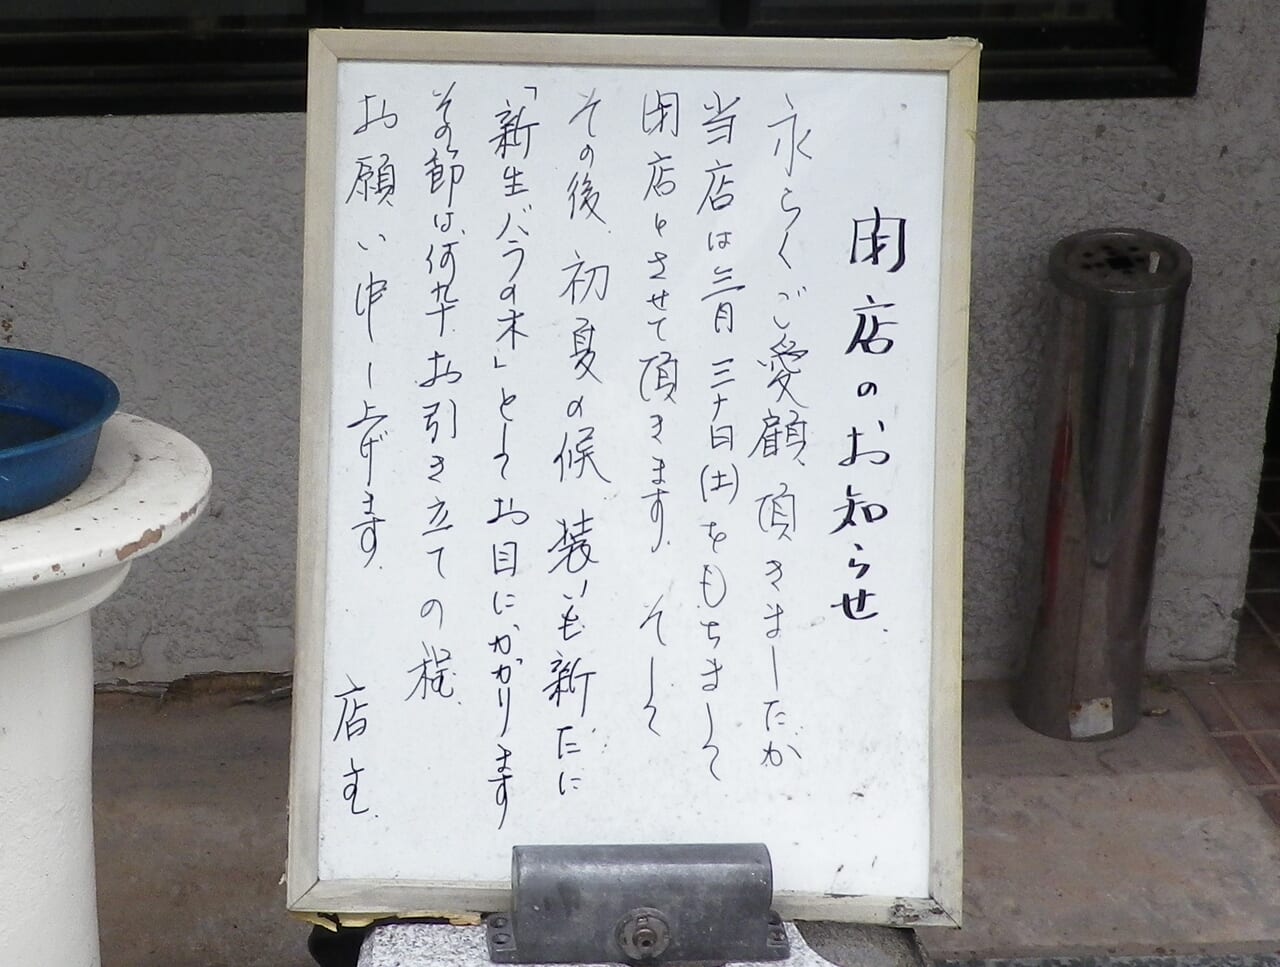 閉店のお知らせ
永らくご愛顧頂きましたが
当店は三月三十日(土)をもちまして
閉店とさせて頂きます。そして
その後、初夏の候 装いも新だに
「新生バラの木」としてお目にかかります
その節は、何卆お引き立ての程
お願い申し上げます。 店主